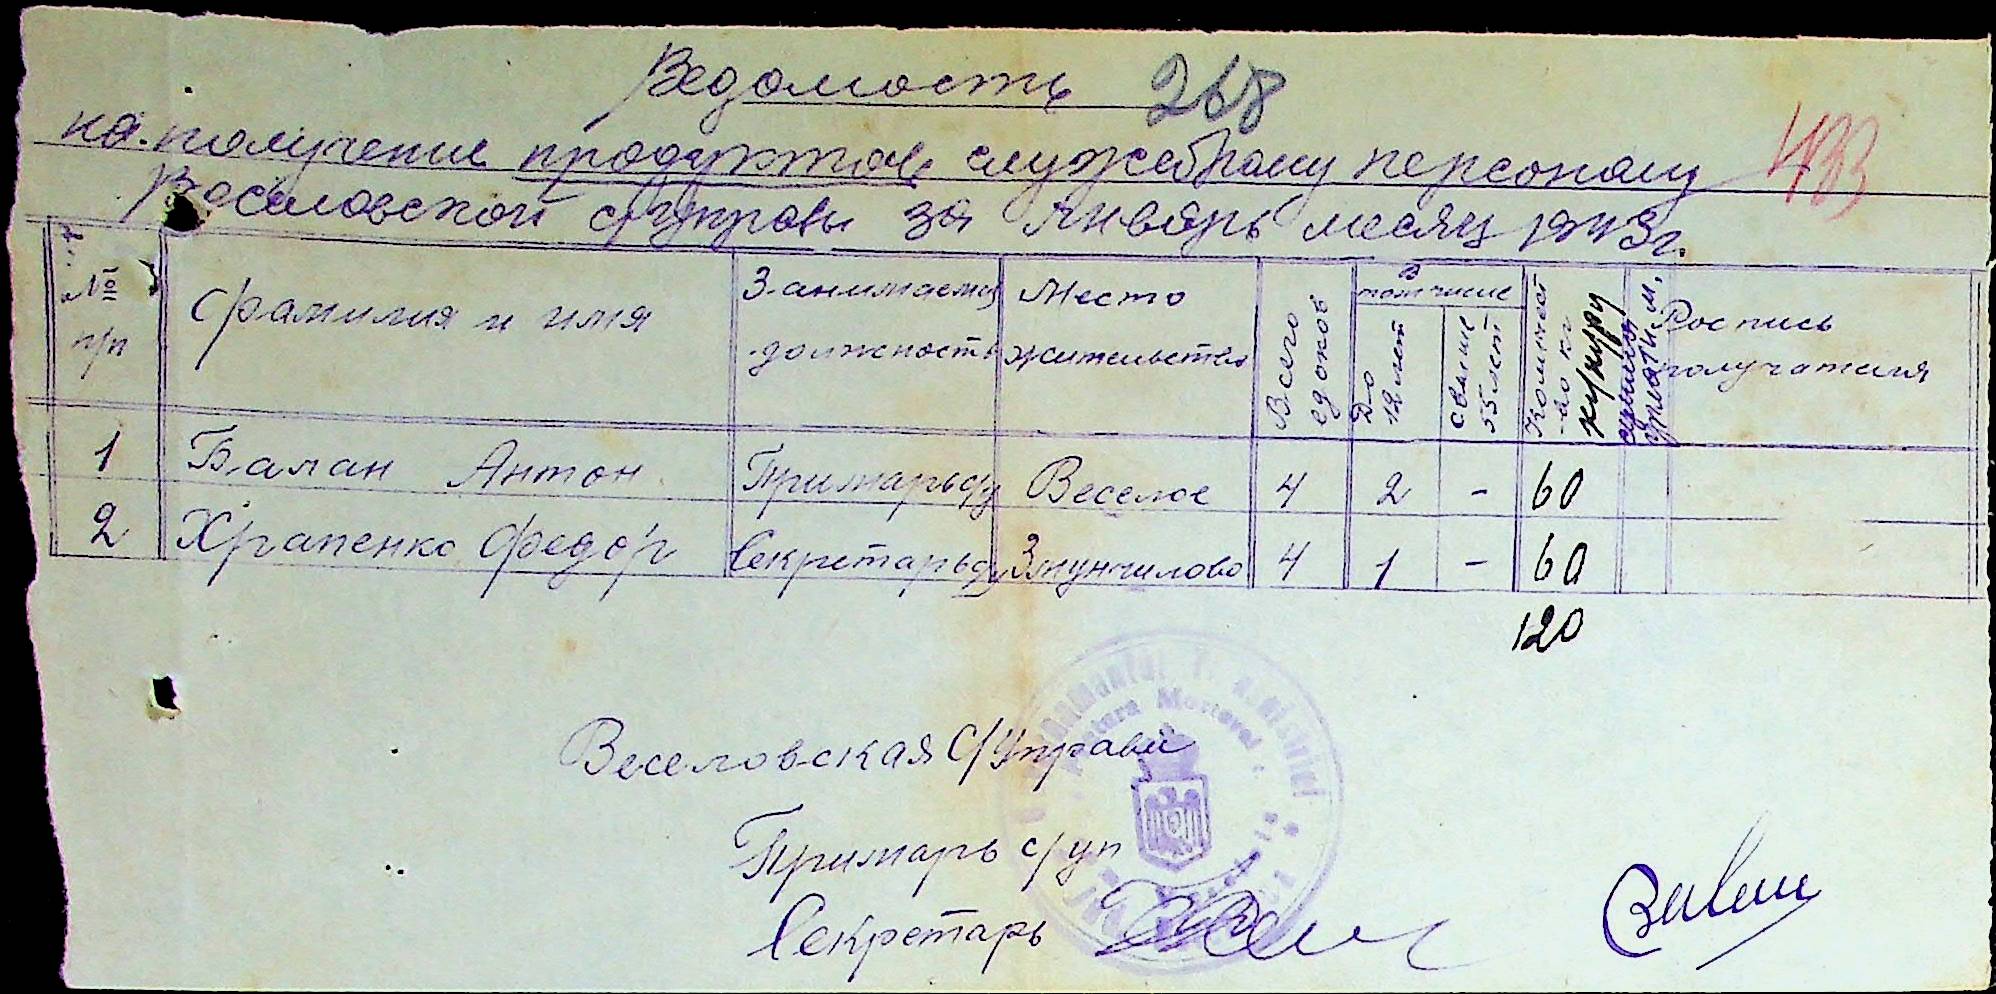 Ведомость 268
на получение продуктов служебному персоналу 433
Веселовской с/управы за январь месяц 1943 г.
№ п/п
Фамилия и имя
Занимаемая должность
Место жительства
Всего едоков
В том числе
До 12 лет
свыше 55 лет
Количест-во кг кукуру
Роспись получателя
1 Балан Антон Примарь с/у Веселое 4 2 - 60
2 Храпенко Федор Секретарь с/у Змунчилово 4 1 - 60
120
Веселовская с/управа
Примарь с/уп
Секретарь